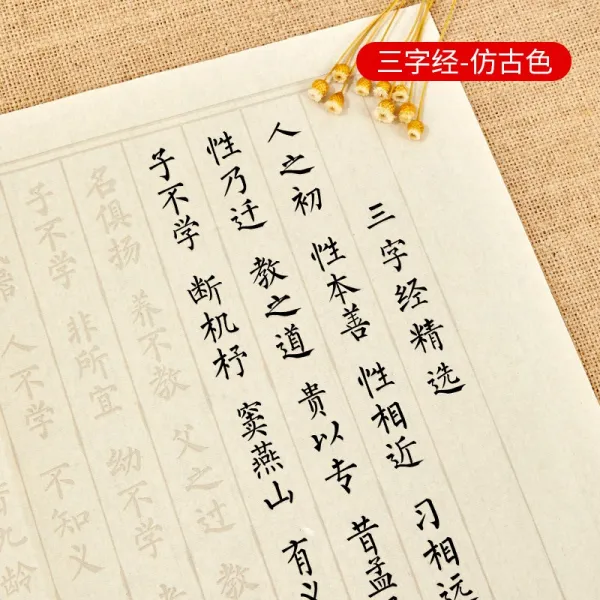 三字经-仿古色
三字经精选
人之初 性本善 性相近 习相远
性乃迁 教之道 贵以专 昔孟
子不学 断机杼 窦燕山 有义
名俱扬 养不教 父之过 教
子不学 非所宜 幼不学
人不学 不知义
九龄